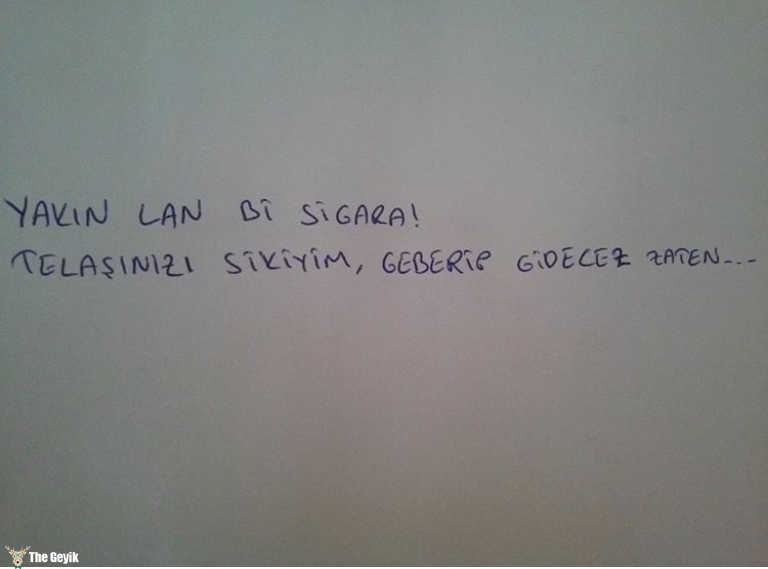 YAKIN LAN Bİ SİGARA!
TELAŞINIZI SİKİYİM, GEBERİP GİDECEZ ZATEN...
The Geyik